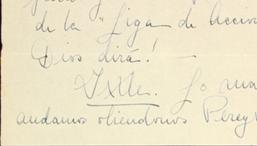 de la "Liga de Accion
Dios dirá! —
Lo ma
andamos oliendonos Perey